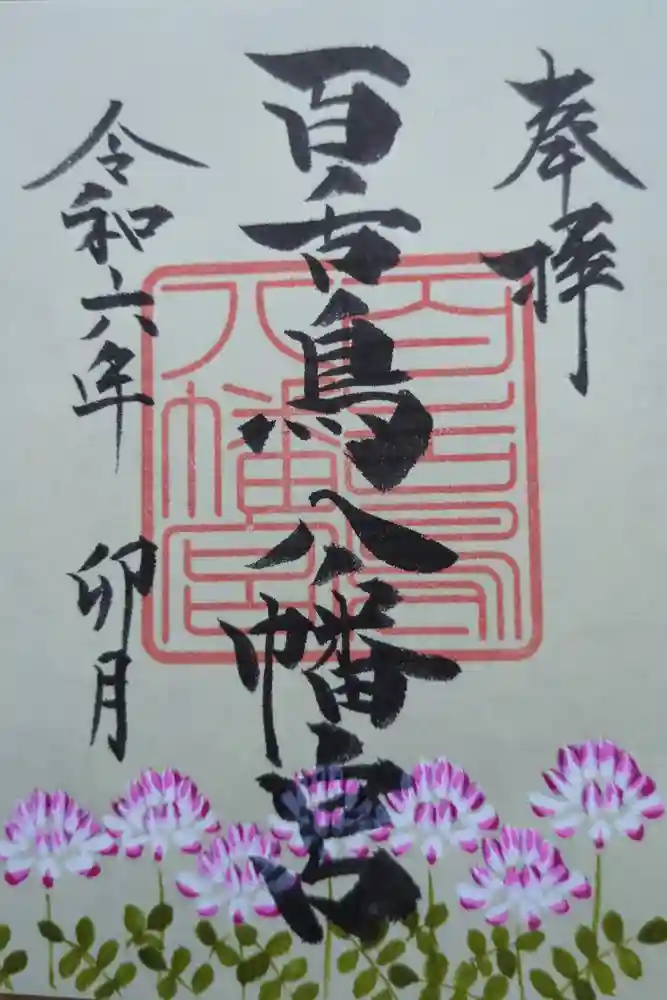 奉拝
百舌鳥八幡宮
百舌鳥
八幡宮
令和六年 卯月